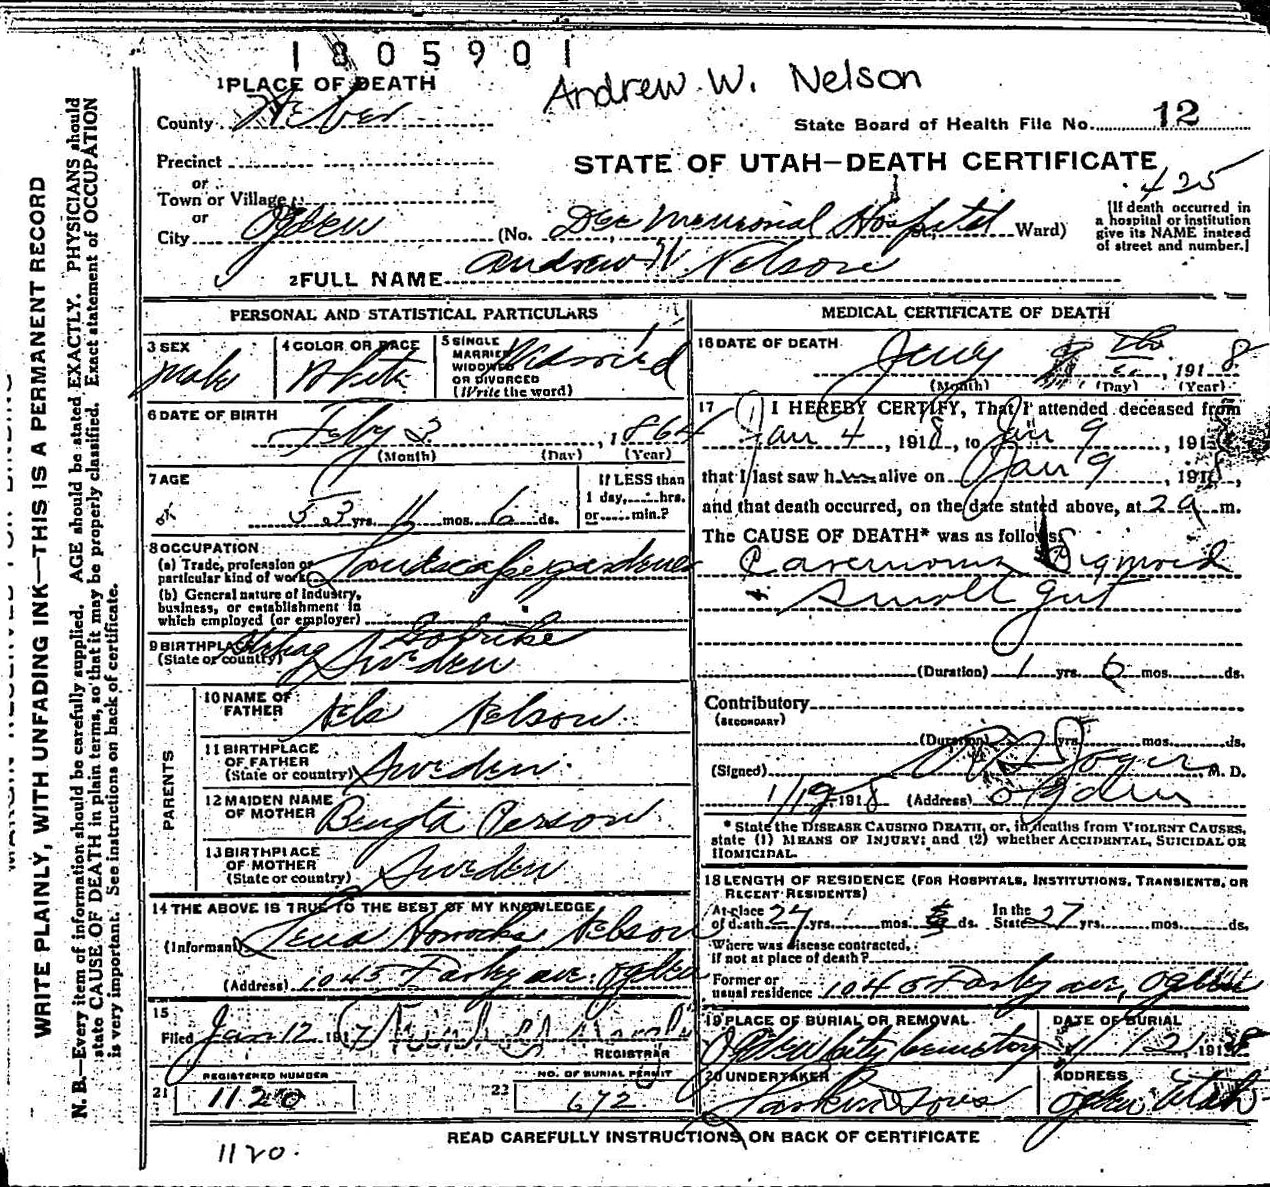 1805901
Andrew W. Nelson
1 PLACE OF DEATH
County Weber
State Board of Health File No. 12
Precinct
or
STATE OF UTAH—DEATH CERTIFICATE
425
Town or Village
or
City Ogden (No. Dee Memorial Hospital St., Ward)
[If death occurred in
a hospital or institution
give its NAME instead
of street and number.]
2 FULL NAME Andrew W Nelson
PERSONAL AND STATISTICAL PARTICULARS
3 SEX
male
4 COLOR OR RACE
White
5 SINGLE
MARRIED
WIDOWED
OR DIVORCED
(Write the word)
6 DATE OF BIRTH
Feby 3, 1864
(Month) (Day) (Year)
7 AGE
53 yrs. 11 mos. 6 ds.
If LESS than
1 day, hrs.
or min.?
8 OCCUPATION
(a) Trade, profession or
particular kind of work Landscape gardener
(b) General nature of industry,
business, or establishment in
which employed (or employer)
9 BIRTHPLACE
(State or country) Sweden
PARENTS
10 NAME OF
FATHER Nels Nelson
11 BIRTHPLACE
OF FATHER
(State or country) Sweden
12 MAIDEN NAME
OF MOTHER Bengta Person
13 BIRTHPLACE
OF MOTHER
(State or country) Sweden
14 THE ABOVE IS TRUE TO THE BEST OF MY KNOWLEDGE
(Informant) Nelson
(Address) 1045 ave. Ogden
15
Filed Jan 12 191
REGISTRAR
REGISTERED NUMBER
21 1120
NO. OF BURIAL PERMIT
22 672
MEDICAL CERTIFICATE OF DEATH
16 DATE OF DEATH
9 th, 1918
(Month) (Day) (Year)
17 I HEREBY CERTIFY, That I attended deceased from
Jan 4, 1918, to Jan 9, 1918
that I last saw him alive on Jan 9, 1918,
and that death occurred, on the date stated above, at 2 a m.
The CAUSE OF DEATH* was as follows:
Sigmoid
& Small gut
(Duration) 1 yrs 6 mos. ds.
Contributory
(SECONDARY)
(Duration) yrs. mos. ds.
(Signed) M. D.
1918 (Address) Ogden
* State the DISEASE CAUSING DEATH, or, in deaths from VIOLENT CAUSES,
state (1) MEANS OF INJURY; and (2) whether ACCIDENTAL, SUICIDAL OR
HOMICIDAL.
18 LENGTH OF RESIDENCE (FOR HOSPITALS, INSTITUTIONS, TRANSIENTS, OR
RECENT RESIDENTS)
At place
of death 27 yrs. mos. ds. In the
State 27 yrs. mos. ds.
Where was disease contracted,
if not at place of death?
Former or
usual residence 1045 ave, Ogden
19 PLACE OF BURIAL OR REMOVAL
Ogden City Cemetery
DATE OF BURIAL
1/12, 1918
20 UNDERTAKER
Larkin & Sons
ADDRESS
Ogden Utah
READ CAREFULLY INSTRUCTIONS ON BACK OF CERTIFICATE
1120.
WRITE PLAINLY, WITH UNFADING INK—THIS IS A PERMANENT RECORD
N. B.—Every item of information should be carefully supplied. AGE should be stated EXACTLY. PHYSICIANS should
state CAUSE OF DEATH in plain terms, so that it may be properly classified. Exact statement of OCCUPATION
is very important. See instructions on back of certificate.